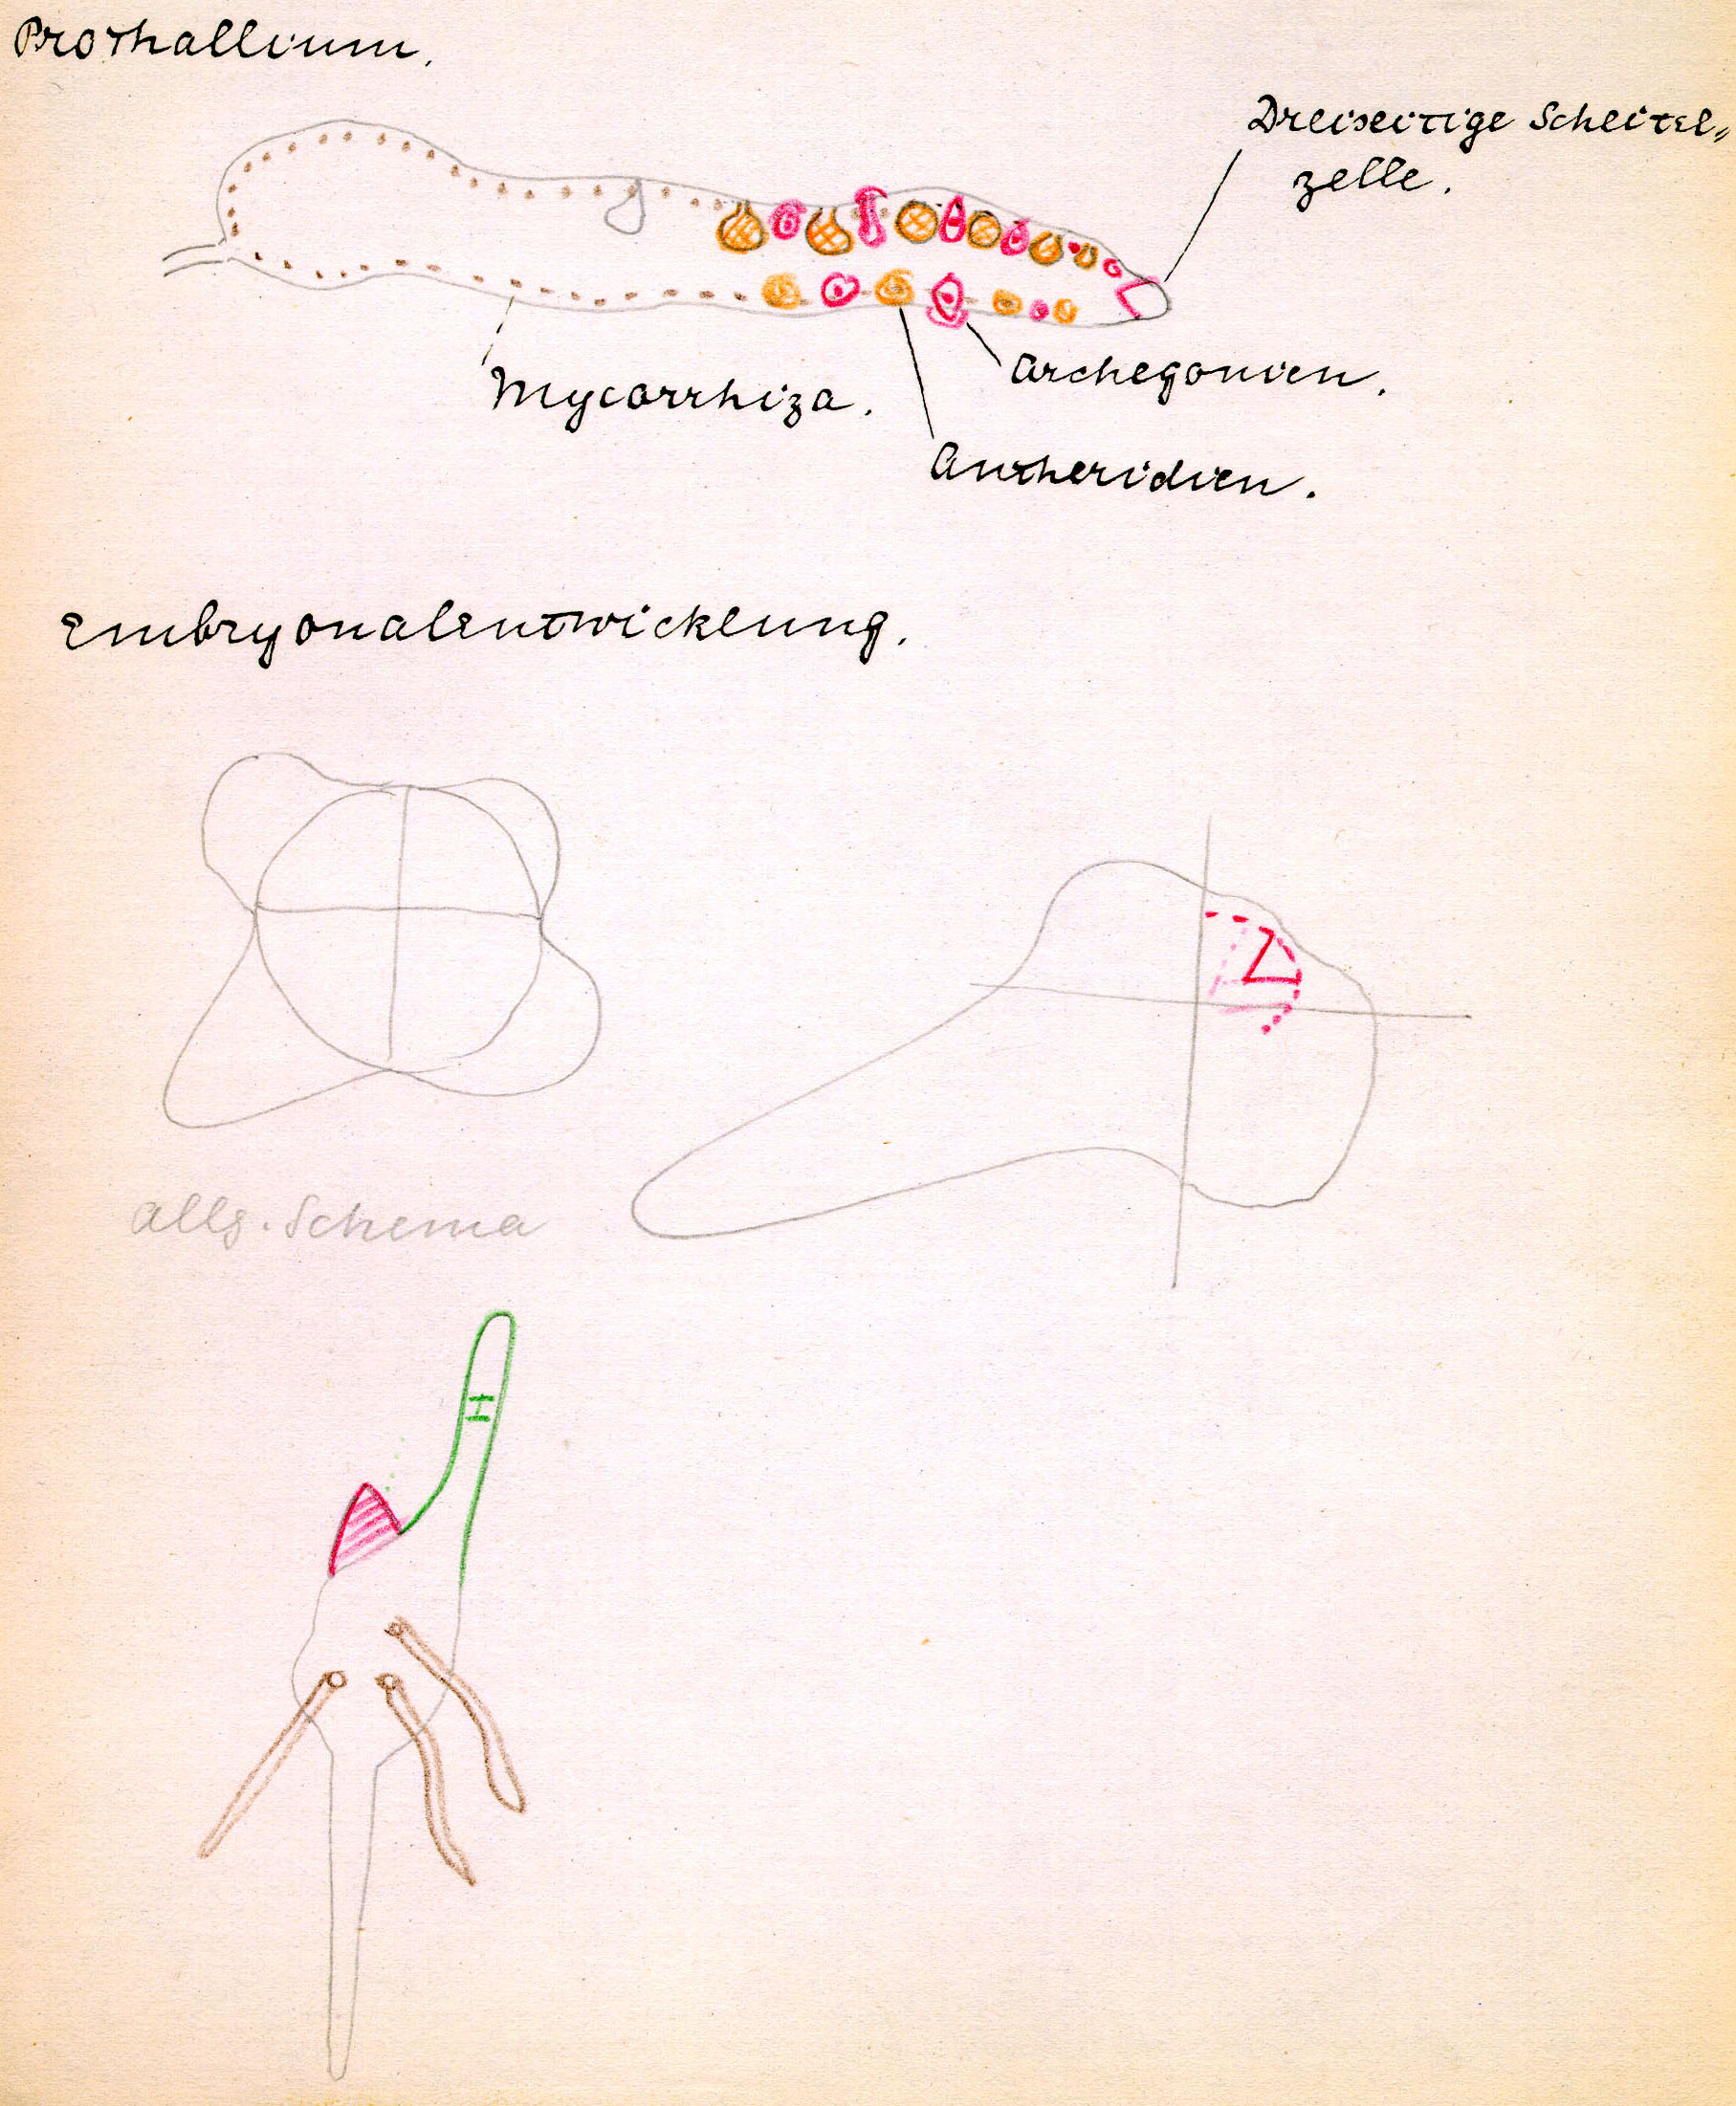 Prothallium.
Dreiseitige Scheitel=
zelle.
Mycorrhiza.
Archegonien.
Antheridien.
Embryonalentwicklung.
allg. Schema